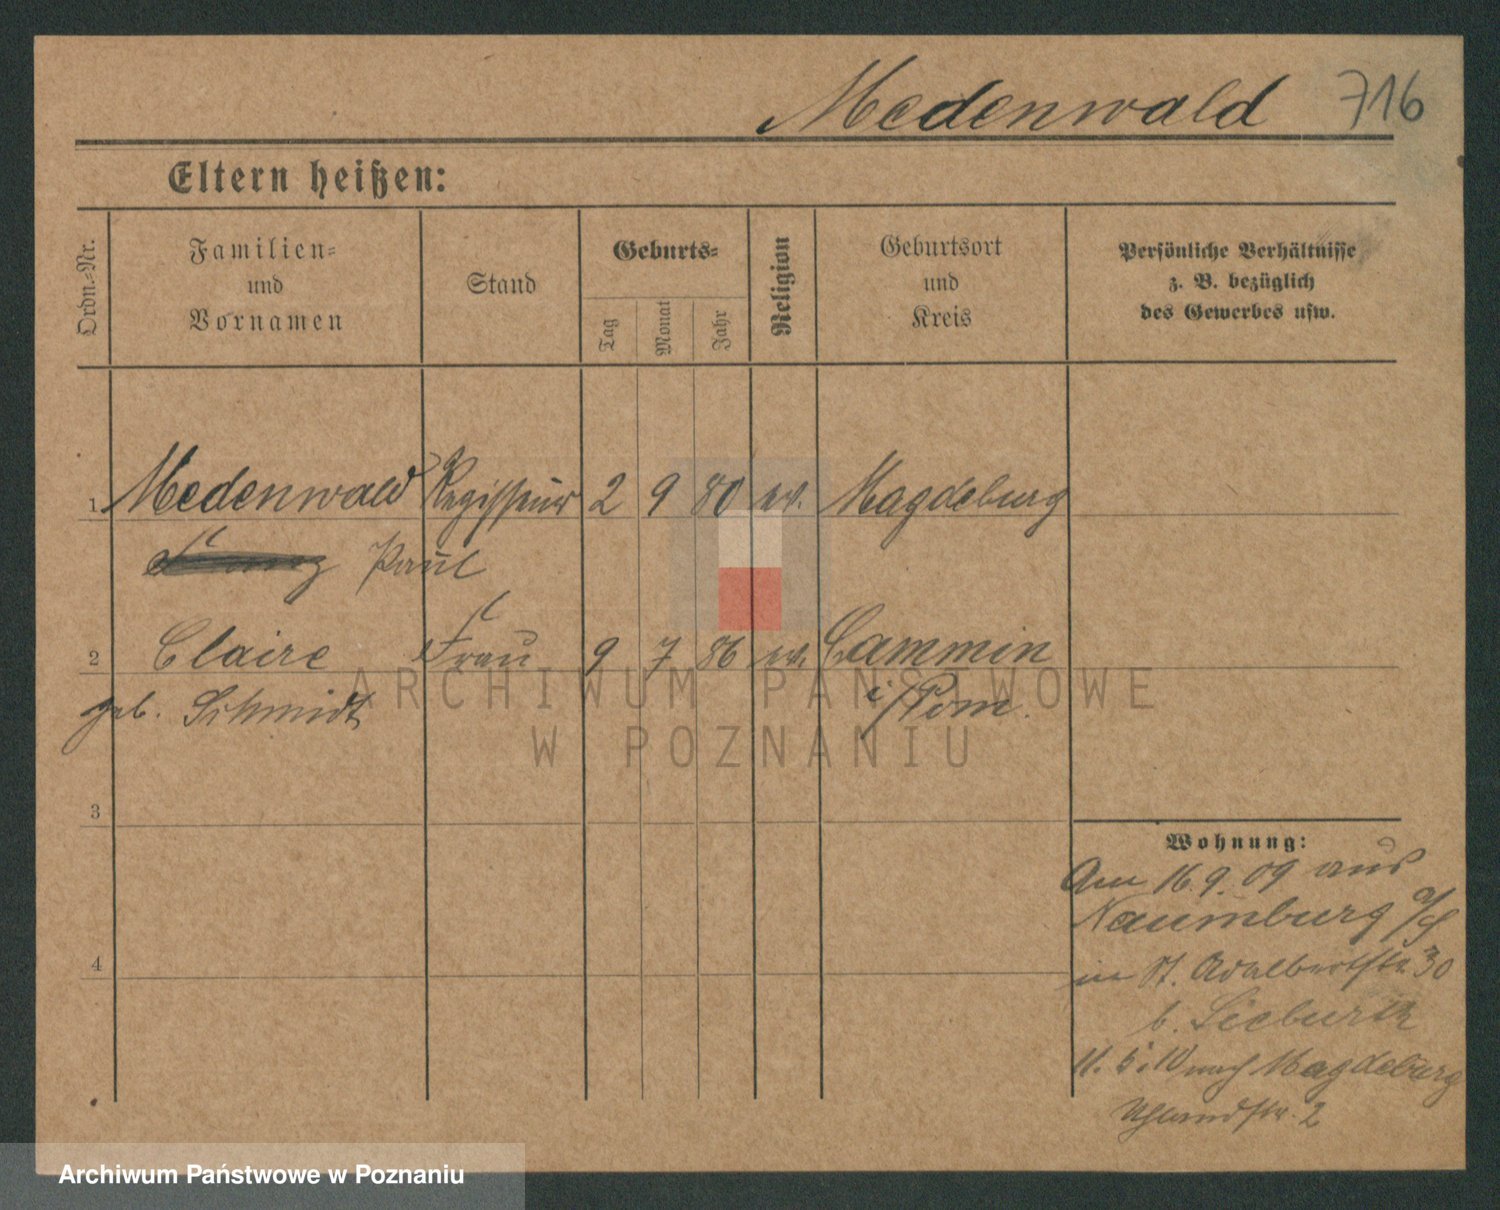 Medenwald 716
Eltern heißen:
Ordn.-Nr.
Familien-
und
Vornamen
Stand
Geburts-
Tag
Monat
Jahr
Religion
Geburtsort
und
Kreis
Persönliche Verhältnisse
z. B. bezüglich
des Gewerbes usw.
1 Medenwald Regisseur 2 9 80 ev. Magdeburg
Paul
2 Claire Frau 9 7 86 ev. Cammin
geb. Schmidt i/Pom.
ARCHIWUM PAŃSTWOWE
W POZNANIU
3
4
Wohnung:
Am 16.9.09 aus
Naumburg a/S
in St. Adalbertstr 30
b. Sieburth
11. 5. 10 nach Magdeburg
Uhlandstr. 2
Archiwum Państwowe w Poznaniu